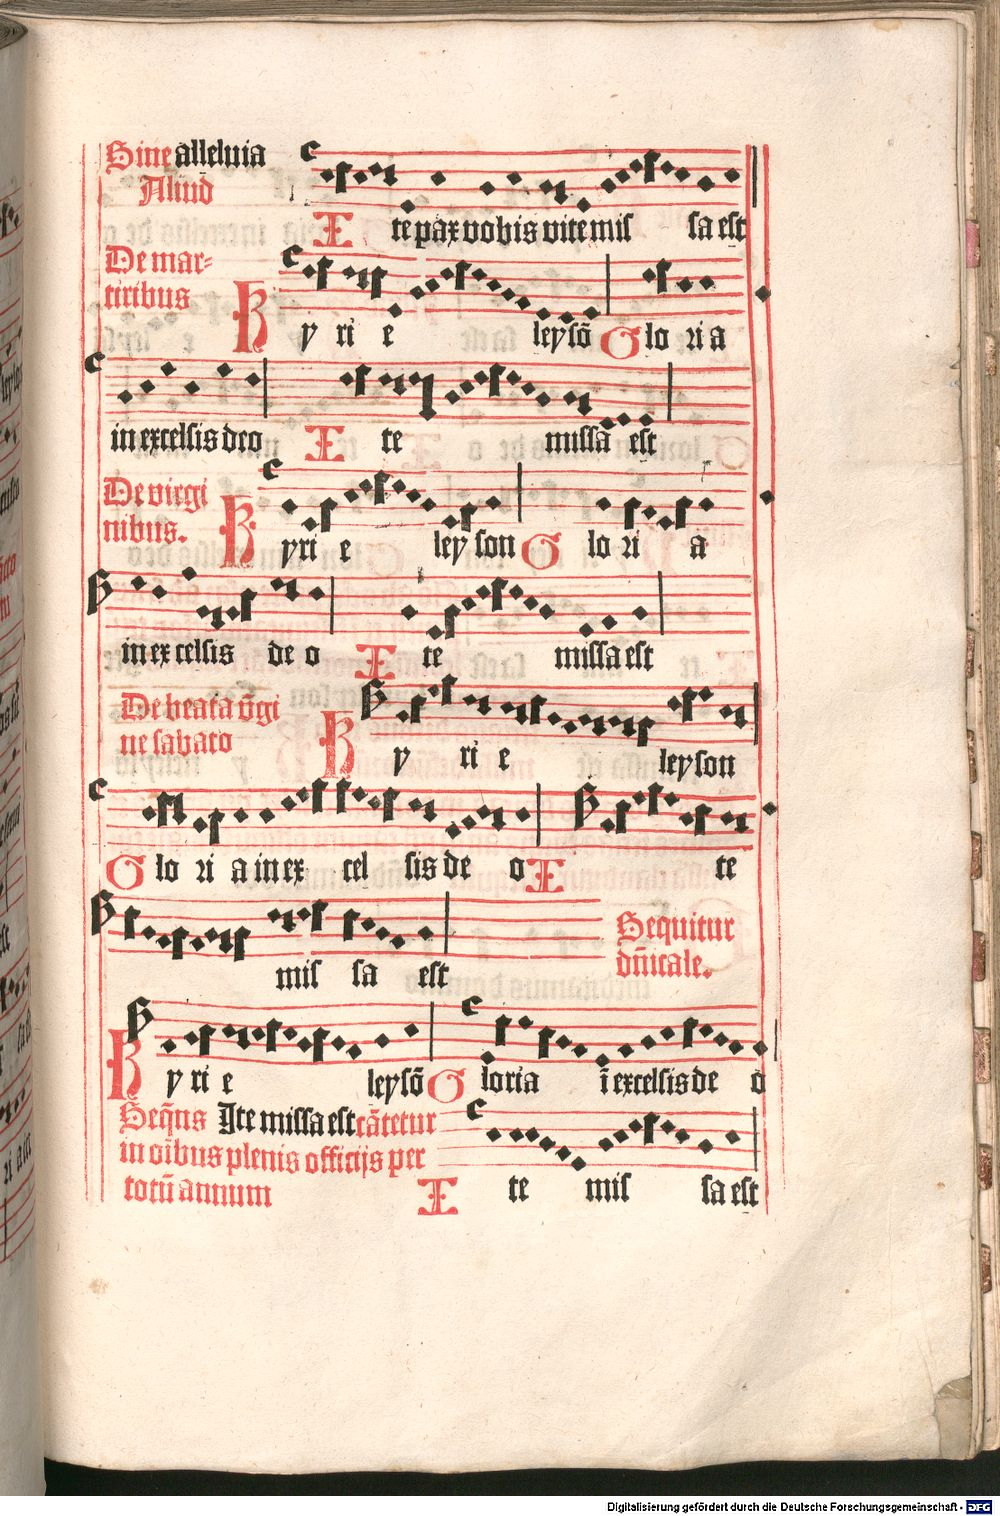 Sine alleluia
Aliud̄
I te pax vobis vite mis sa est
De mar⸗
tiribus
K y ri e leysō G lo ri a
in excelsis deo I te missa est
De virgi
nibus.
K yri e ley son G lo ri a
in ex celsis de o I te missa est
De beata v̄gi
ne sabato
K y ri e ley son
G lo ri a in ex cel sis de o I te
mis sa est
Sequitur
dn̄icale.
K y ri e leysō G loria ī excelsis de o
Seq̄ns Ite missa est cātetur
in oībus plenis officijs per
totū annum
I te mis sa est
Digitalisierung gefördert durch die Deutsche Forschungsgemeinschaft - DFG